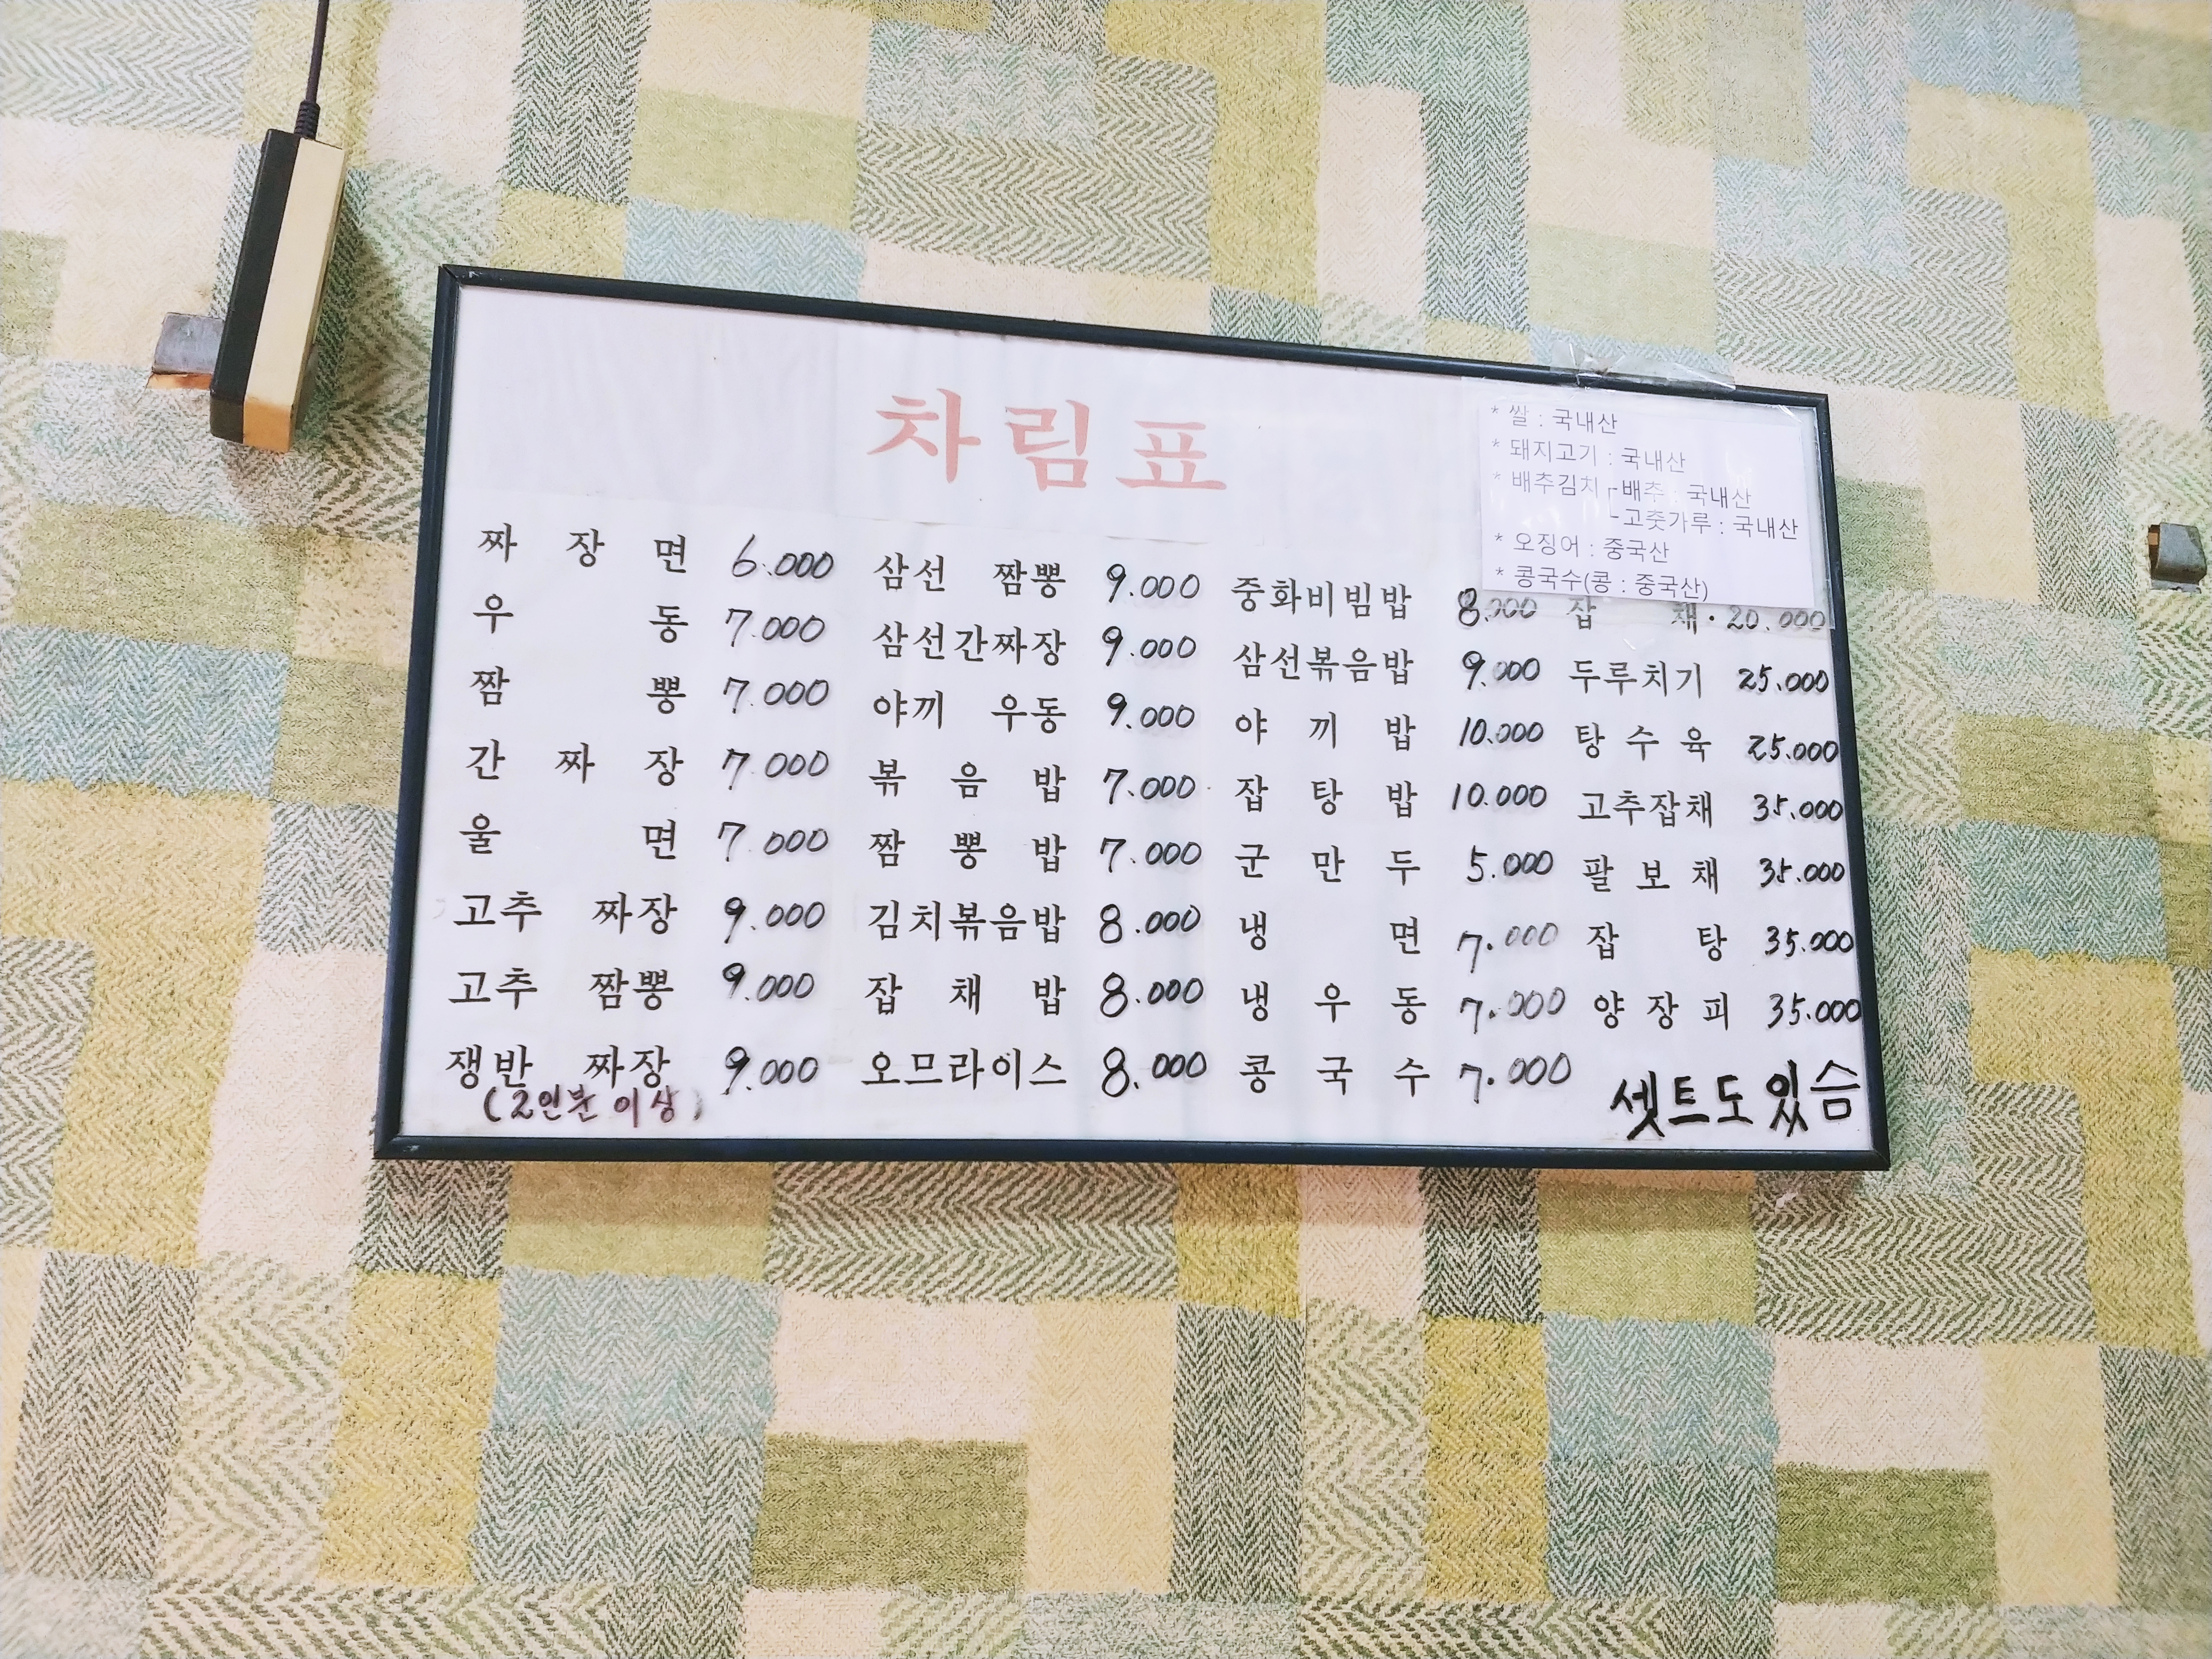 차림표
* 쌀 : 국내산
* 돼지고기 : 국내산
* 배추김치┌배추 : 국내산
└고춧가루 : 국내산
* 오징어 : 중국산
* 콩국수(콩 : 중국산)
짜장면 6.000
우동 7.000
짬뽕 7.000
간짜장 7.000
울면 7.000
고추 짜장 9.000
고추 짬뽕 9.000
쟁반 짜장 9.000
(2인분 이상)
삼선 짬뽕 9.000
삼선간짜장 9.000
야끼 우동 9.000
볶음밥 7.000
짬뽕밥 7.000
김치볶음밥 8.000
잡채밥 8.000
오므라이스 8.000
중화비빔밥 8.000
삼선볶음밥 9.000
야끼밥 10.000
잡탕밥 10.000
군만두 5.000
냉면 7.000
냉우동 7.000
콩국수 7.000
잡채 20.000
두루치기 25.000
탕수육 25.000
고추잡채 35.000
팔보채 35.000
잡탕 35.000
양장피 35.000
셋트도 있슴